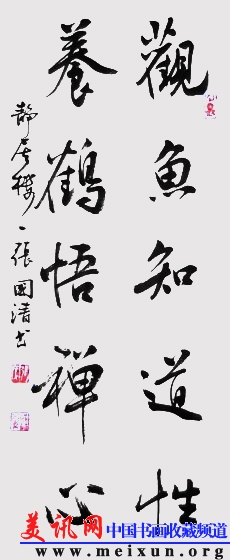 觀魚知道性
養鶴悟禪心
靜居樓 張國清书
美讯网 中国书画收藏频道
www.meixun.org